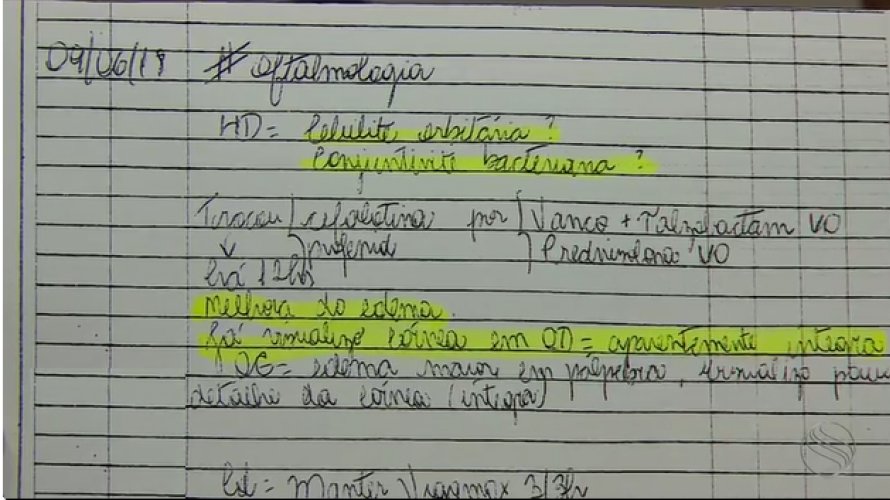 09/06/19 # oftalmologia
HD = Celulite orbitária ?
Conjuntivite bacteriana ?
Trocou cefalotina por Vanco + Tazobactam VO
↓ profenid Prednisolona VO
há 12hs
Melhora do edema.
Já visualizo córnea em OD = aparentemente íntegra
OE = edema maior em pálpebra, visualizo pouco
detalhe da córnea (íntegra)
Cd = Manter Vigamox 3/3h